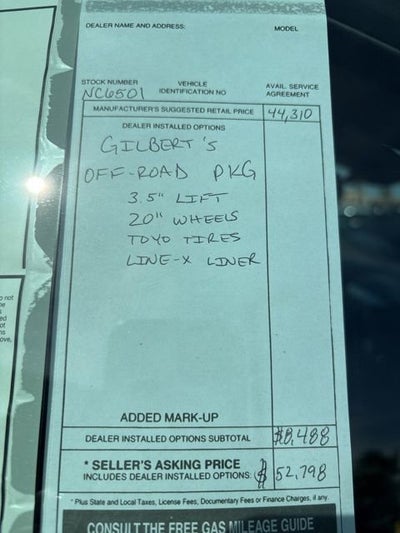 DEALER NAME AND ADDRESS:
MODEL
STOCK NUMBER
VEHICLE IDENTIFICATION NO
AVAIL. SERVICE AGREEMENT
NC6501
MANUFACTURER'S SUGGESTED RETAIL PRICE 44,310
DEALER INSTALLED OPTIONS
GILBERT'S
OFF-ROAD PKG
3.5" LIFT
20" WHEELS
TOYO TIRES
LINE-X LINER
ADDED MARK-UP
DEALER INSTALLED OPTIONS SUBTOTAL $8,488
* SELLER'S ASKING PRICE
INCLUDES DEALER INSTALLED OPTIONS: $ 52,798
* Plus State and Local Taxes, License Fees, Documentary Fees or Finance Charges, if any.
CONSULT THE FREE GAS MILEAGE GUIDE